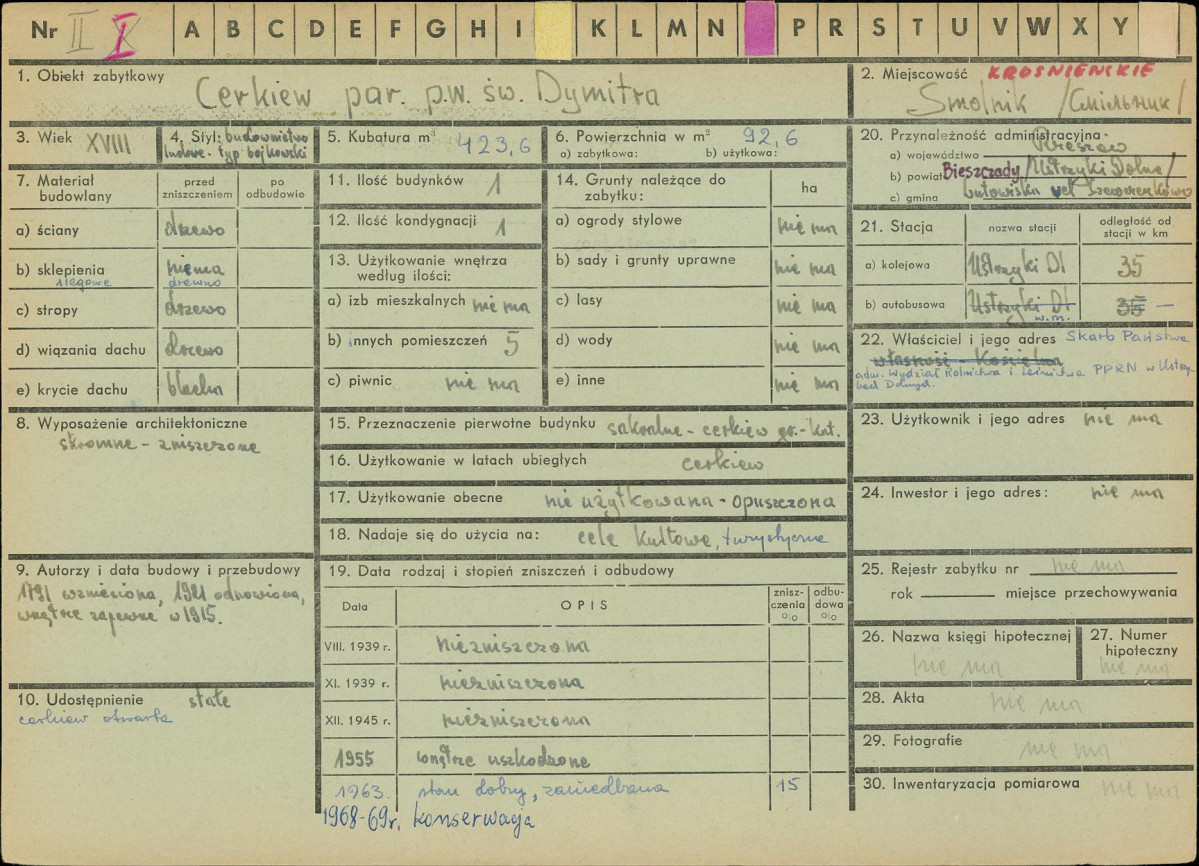 Nr II I A B C D E F G H I K L M N P R S T U V W X Y
1. Obiekt zabytkowy
Cerkiew par. p.w. św. Dymitra
2. Miejscowość KROŚNIEŃSKIE
Smolnik /Смільник/
3. Wiek XVIII
4. Styl: budownictwo
ludowe - typ bojkowski
5. Kubatura m³ 423,6
6. Powierzchnia w m² 92,6
a) zabytkowa: b) użytkowa:
20. Przynależność administracyjna
a) województwo Rzeszów
b) powiat Bieszczady /Ustrzyki Dolne/
c) gmina Lutowiska vel Szewczenkowo
7. Materiał budowlany
przed zniszczeniem
po odbudowie
a) ściany drzewo
b) sklepienia niema
drewno
c) stropy drzewo
d) wiązania dachu drzewo
e) krycie dachu blacha
11. Ilość budynków 1
12. Ilość kondygnacji 1
13. Użytkowanie wnętrza
według ilości:
a) izb mieszkalnych nie ma
b) innych pomieszczeń 5
c) piwnic nie ma
14. Grunty należące do
zabytku: ha
a) ogrody stylowe nie ma
b) sady i grunty uprawne nie ma
c) lasy nie ma
d) wody nie ma
e) inne nie ma
21. Stacja nazwa stacji odległość od
stacji w km
a) kolejowa Ustrzyki Dl 35
b) autobusowa Ustrzyki Dl 35 —
w.m.
22. Właściciel i jego adres Skarb Państwa
własność - Kościelna
adm. Wydział Rolnictwa i Leśnictwa PPRN w Ustrzy-
kach Dolnych.
8. Wyposażenie architektoniczne
skromne - zniszczone
15. Przeznaczenie pierwotne budynku sakralne - cerkiew gr.-kat.
16. Użytkowanie w latach ubiegłych cerkiew
17. Użytkowanie obecne nie użytkowana - opuszczona
18. Nadaje się do użycia na: cele kultowe, turystyczne
23. Użytkownik i jego adres nie ma
24. Inwestor i jego adres: nie ma
9. Autorzy i data budowy i przebudowy
1791 wzniesiona, 1921 odnowiona,
wnętrze zapewne w 1915.
10. Udostępnienie stałe
cerkiew otwarta
19. Data rodzaj i stopień zniszczeń i odbudowy
Data OPIS zniszczenia o|o odbudowa o|o
VIII. 1939 r. niezniszczona
XI. 1939 r. niezniszczona
XII. 1945 r. niezniszczona
1955 wnętrze uszkodzone
1963. stan dobry, zaniedbana 15
1968-69r. konserwacja
25. Rejestr zabytku nr nie ma
rok miejsce przechowywania
26. Nazwa księgi hipotecznej
nie ma
27. Numer
hipoteczny
nie ma
28. Akta nie ma
29. Fotografie nie ma
30. Inwentaryzacja pomiarowa nie ma